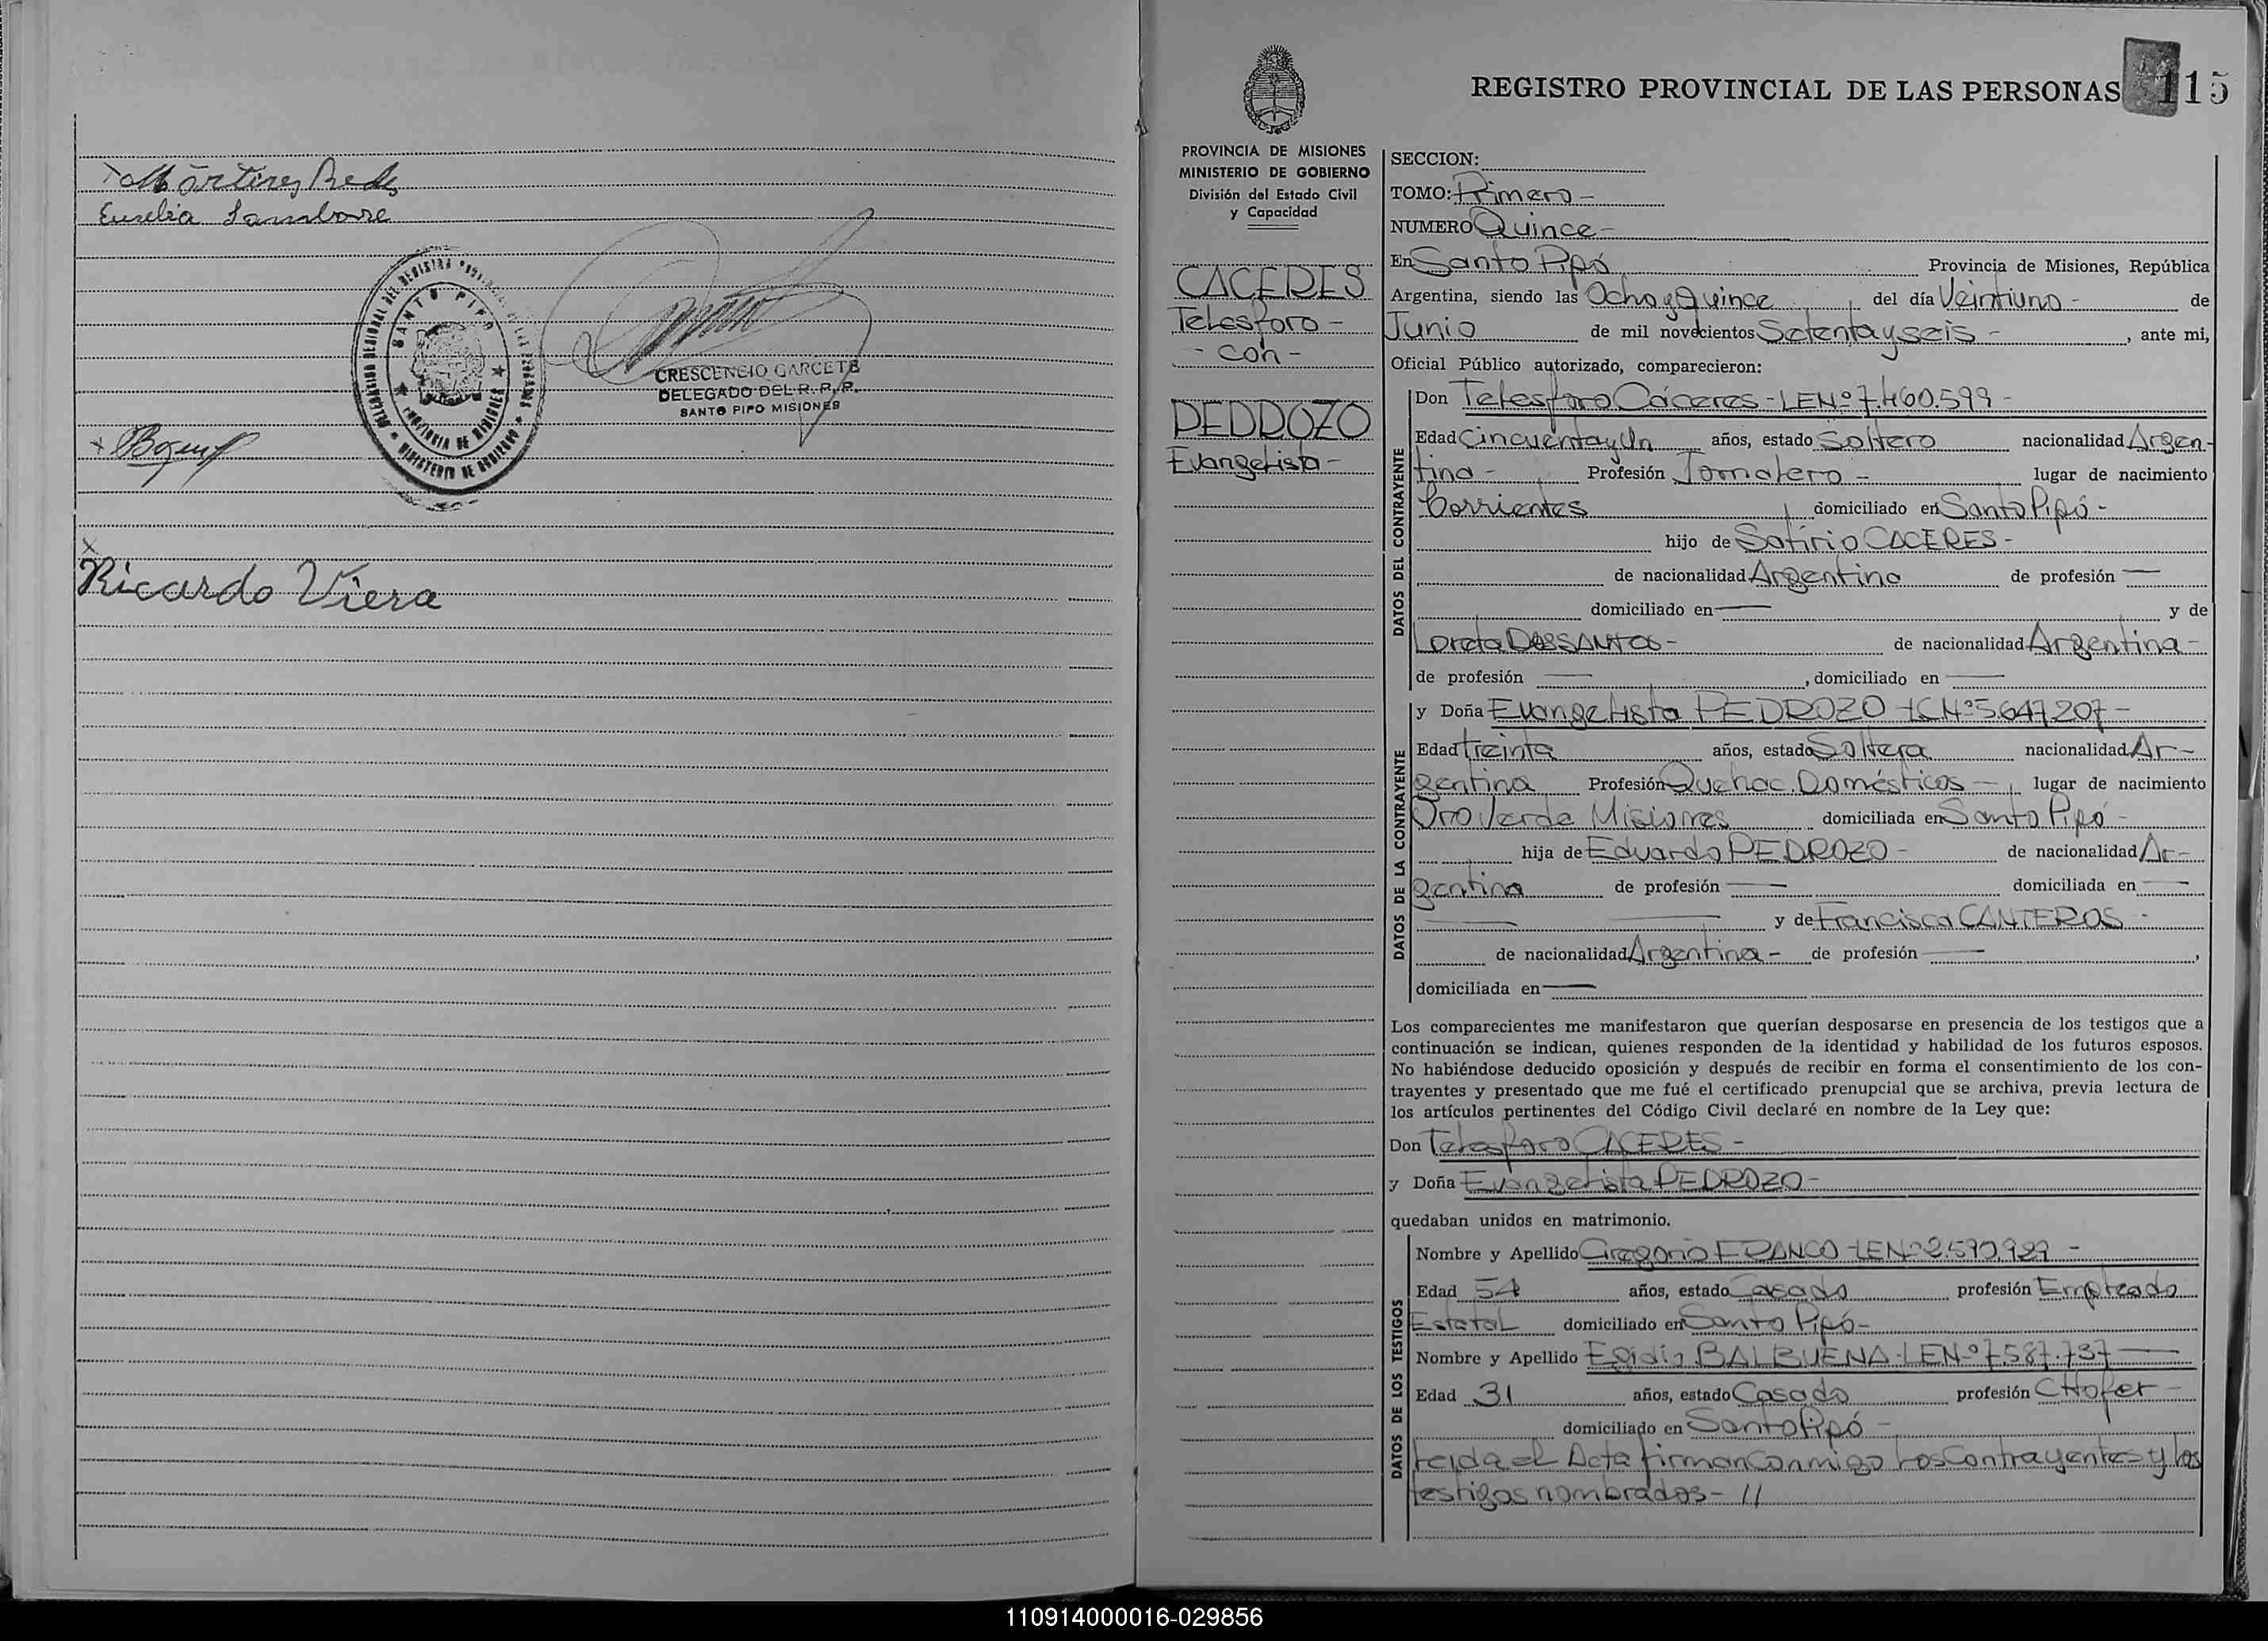 Martinez Pred
Eusebia Sanabria
DELEGACION REGIONAL DEL REGISTRO
SANTO PIPO
PROVINCIA DE MISIONES
MINISTERIO DE GOBIERNO
CRESCENCIO GARCETE
DELEGADO DEL R. P. P.
SANTO PIPO MISIONES
Ricardo Viera
REGISTRO PROVINCIAL DE LAS PERSONAS 115
PROVINCIA DE MISIONES
MINISTERIO DE GOBIERNO
División del Estado Civil
y Capacidad
CACERES
Telesforo -
- con -
PEDROZO
Evangelista -
SECCION:
TOMO: Primero -
NUMERO Quince -
En Santo Pipó Provincia de Misiones, República
Argentina, siendo las Ocho y Quince del día Veintiuno - de
Junio de mil novecientos Setenta y seis - , ante mi,
Oficial Público autorizado, comparecieron:
DATOS DEL CONTRAYENTE
Don Telesforo Cáceres - LENº 7.460.599 -
Edad Cincuenta y Un años, estado Soltero nacionalidad Argen-
tina - Profesión Jornalero - lugar de nacimiento
Corrientes domiciliado en Santo Pipó -
hijo de Satirio CACERES -
de nacionalidad Argentino de profesión —
domiciliado en — y de
Loreta DOSSANTOS - de nacionalidad Argentina -
de profesión — , domiciliado en —
DATOS DE LA CONTRAYENTE
y Doña Evangelista PEDROZO - LCNº 5.647.207 -
Edad treinta años, estado Soltera nacionalidad Ar-
gentina Profesión Quehac. Domésticos - lugar de nacimiento
Oro Verde Misiones domiciliada en Santo Pipó -
hija de Eduardo PEDROZO - de nacionalidad Ar-
gentina de profesión — domiciliada en —
— — y de Francisca CANTEROS -
de nacionalidad Argentina - de profesión — ,
domiciliada en —
Los comparecientes me manifestaron que querían desposarse en presencia de los testigos que a
continuación se indican, quienes responden de la identidad y habilidad de los futuros esposos.
No habiéndose deducido oposición y después de recibir en forma el consentimiento de los con-
trayentes y presentado que me fué el certificado prenupcial que se archiva, previa lectura de
los artículos pertinentes del Código Civil declaré en nombre de la Ley que:
Don Telesforo CACERES -
y Doña Evangelista PEDROZO -
quedaban unidos en matrimonio.
DATOS DE LOS TESTIGOS
Nombre y Apellido Gregorio FRANCO - LENº 2.590.929 -
Edad 54 años, estado Casado profesión Empleado
Estatal domiciliado en Santo Pipó -
Nombre y Apellido Egidio BALBUENA - LENº 7.587.737 —
Edad 31 años, estado Casado profesión CHofer -
domiciliado en Santo Pipó -
Leída el Acta firman conmigo los Contrayentes y los
testigos nombrados - //
110914000016-029856